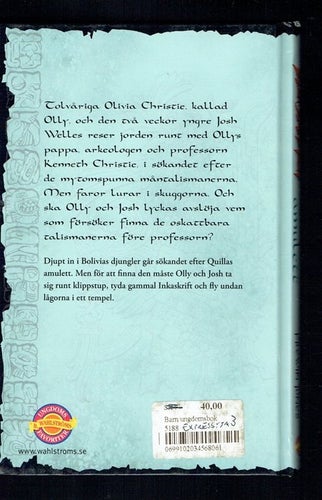 Tolvåriga Olivia Christie, kallad
Olly, och den två veckor yngre Josh
Welles reser jorden runt med Ollys
pappa, arkeologen och professorn
Kenneth Christie, i sökandet efter
de mytomspunna måntalismanerna.
Men faror lurar i skuggorna. Och
ska Olly och Josh lyckas avslöja vem
som försöker finna de oskattbara
talismanerna före professorn?
Djupt in i Bolivias djungler går sökandet efter Quillas
amulett. Men för att finna den måste Olly och Josh ta
sig runt klippstup, tyda gammal Inkaskrift och fly undan
lågorna i ett tempel.
UNGDOMS
WAHLSTRÖMS
FAVORITER
www.wahlstroms.se
40,00
Barn ungdomsbok
5188
0699102034568061